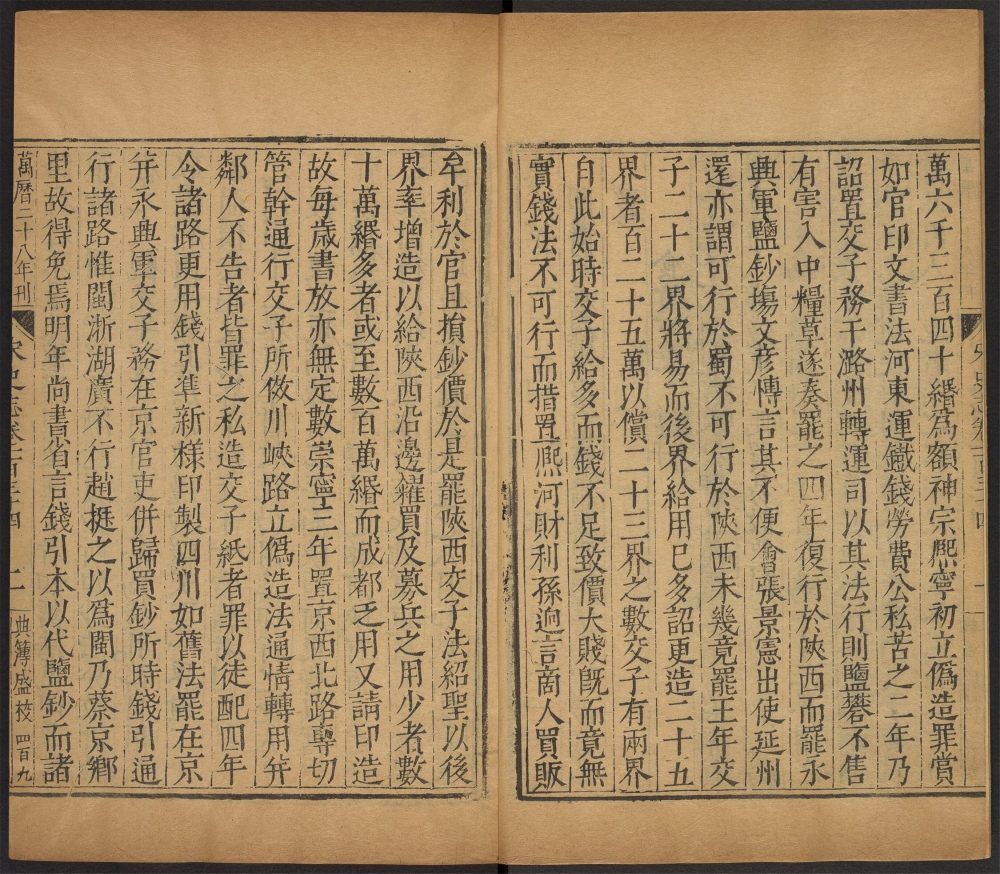 萬六千三百四十緡爲額神宗熙寧初立僞造罪賞
如官印文書法河東運鐡錢勞費公私苦之二年乃
詔置交子務于潞州轉運司以其法行則鹽礬不售
有害入中糧草遂奏罷之四年復行於陜西而罷永
興軍鹽鈔塲文彦博言其不便會張景憲出使延州
還亦謂可行於蜀不可行於陜西未幾竟罷五年交
子二十二界將易而後界給用已多詔更造二十五
界者百二十五萬以償二十三界之數交子有兩界
自此始時交子給多而錢不足致價大賤旣而竟無
實錢法不可行而措置熙河財利孫迥言商人買販
牟利於官且損鈔價於是罷陜西交子法紹聖以後
界率增造以給陜西沿邊糴買及募兵之用少者數
十萬緡多者或至數百萬緡而成都乏用又請印造
故每歲書放亦無定數崇寧三年置京西北路專切
管幹通行交子所倣川峽路立僞造法通情轉用并
鄰人不告者皆罪之私造交子紙者罪以徒配四年
令諸路更用錢引凖新樣印製四川如舊法罷在京
并永興軍交子務在京官吏併歸買鈔所時錢引通
行諸路惟閩淅湖廣不行趙挺之以爲閩乃蔡京鄉
里故得免焉明年尚書省言錢引本以代鹽鈔而諸
萬曆二十八年刊
二
典簿盛校
四百九